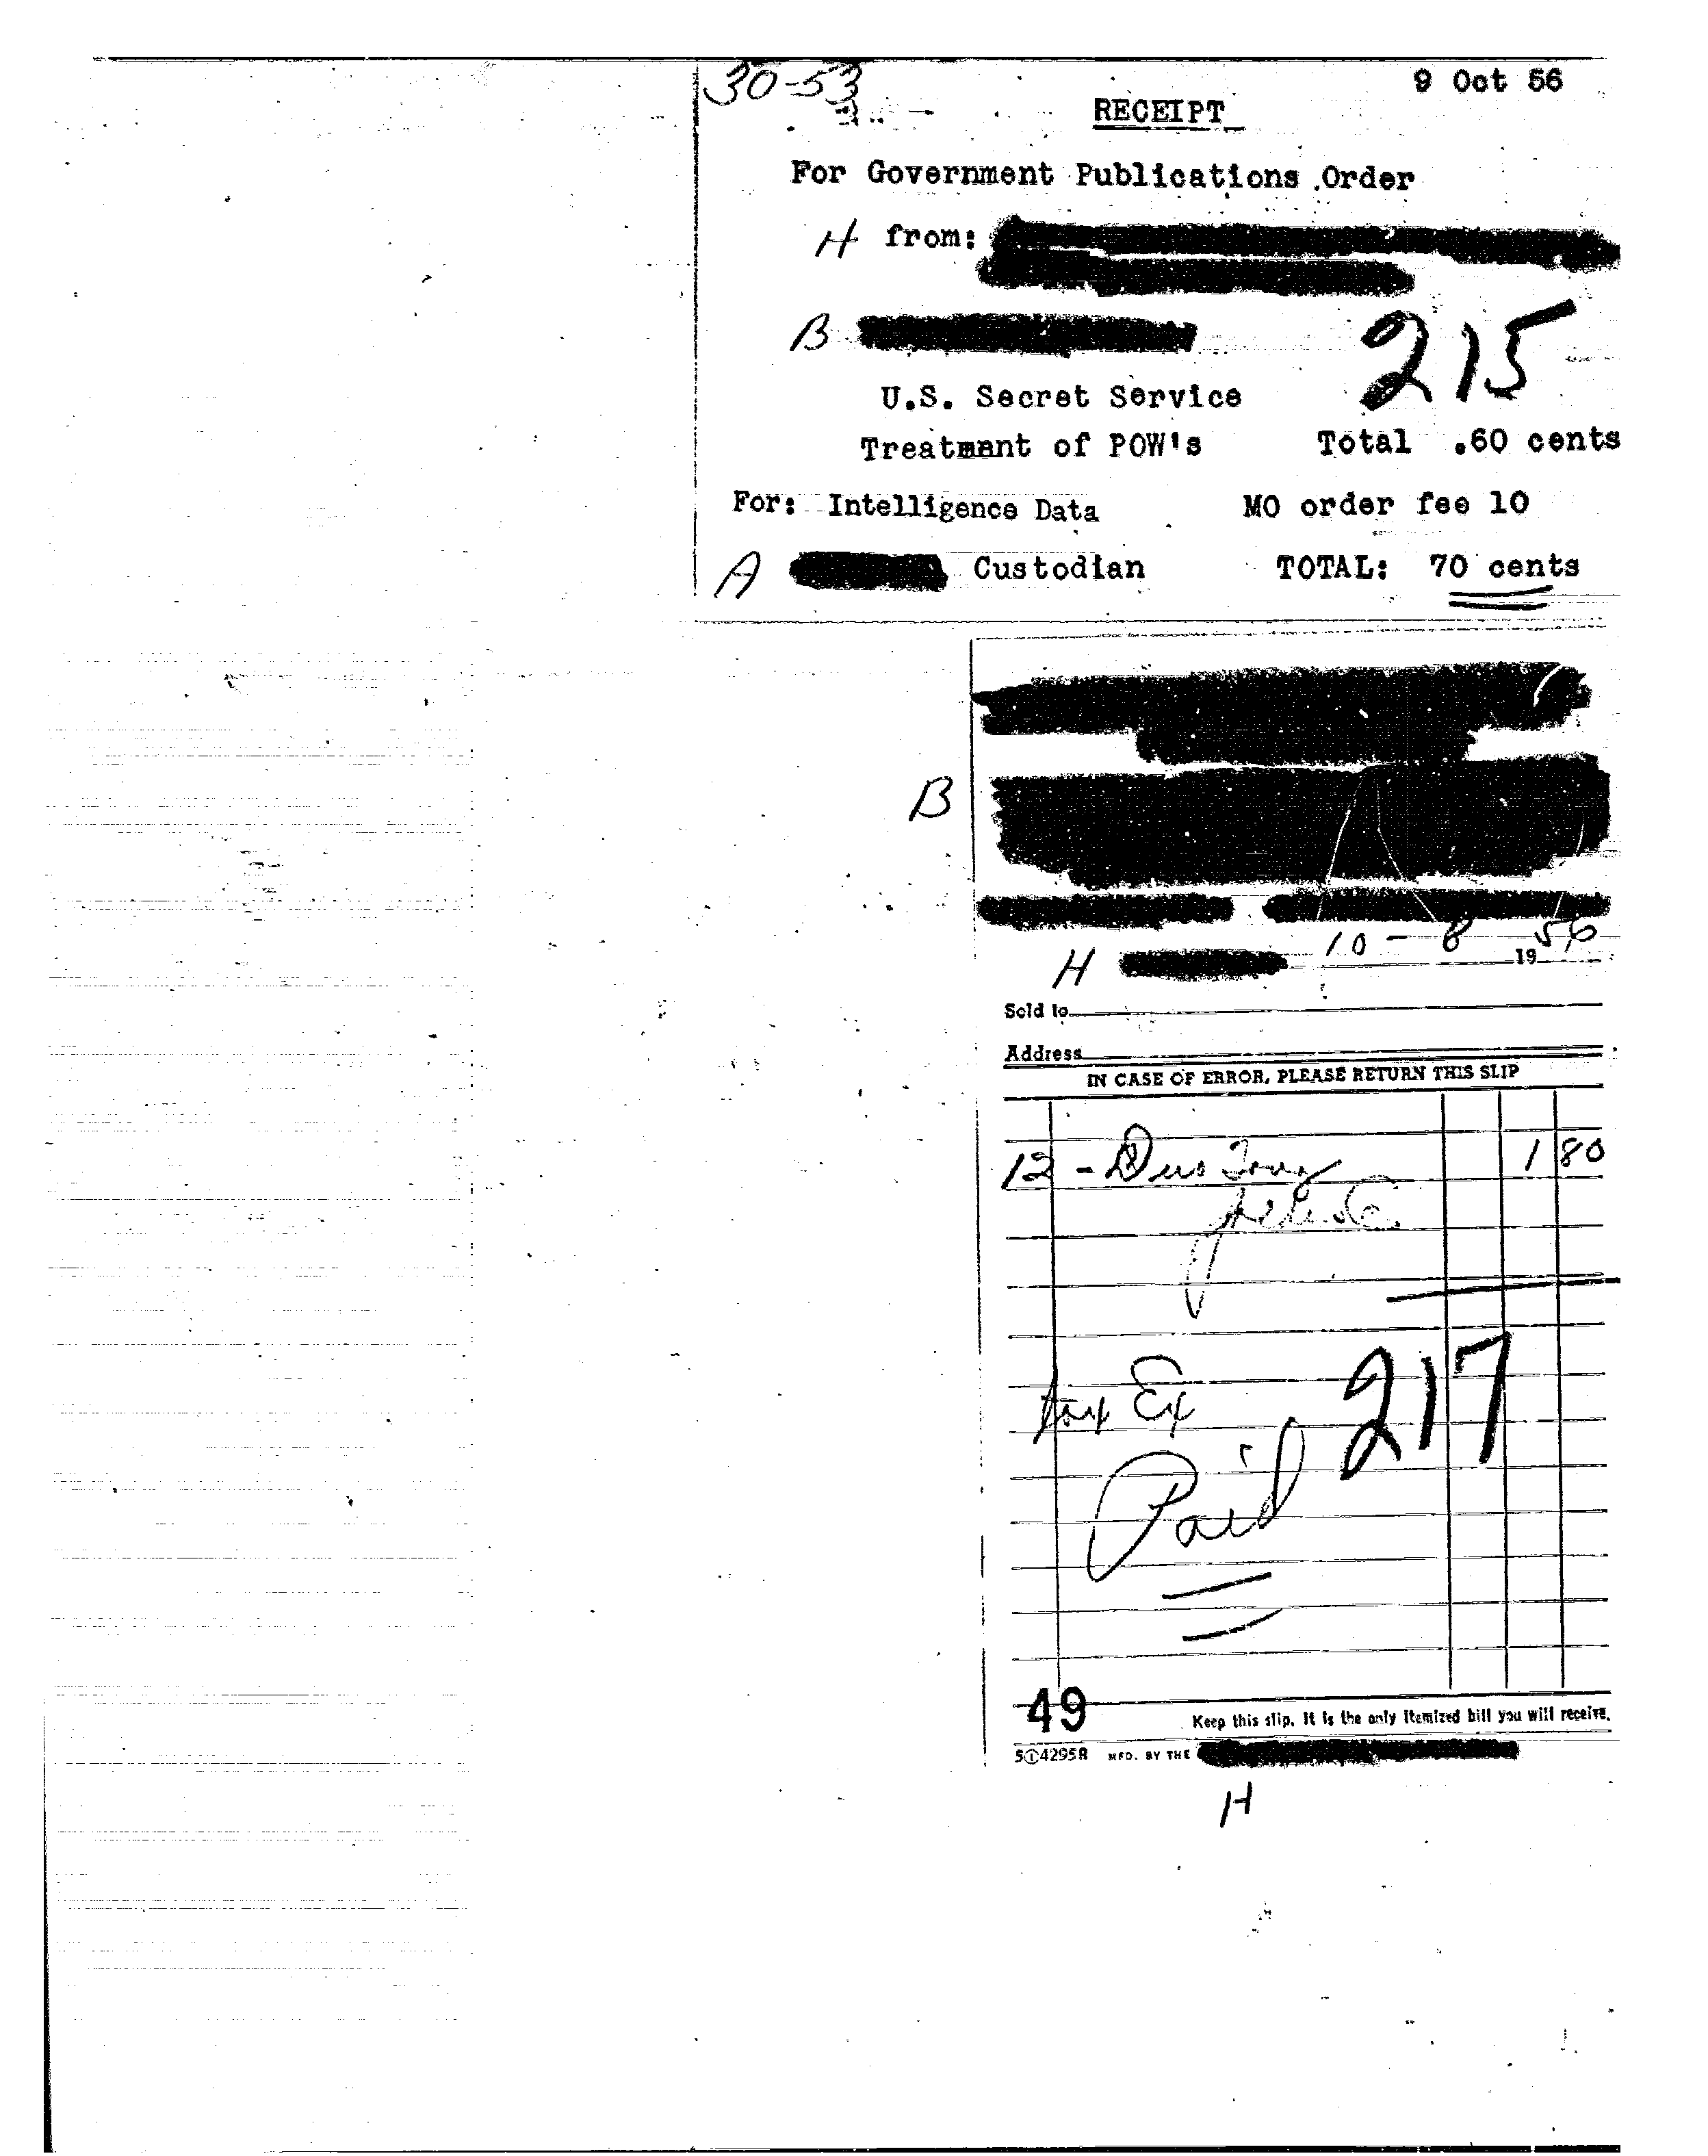 30-53
9 Oct 56
RECEIPT
For Government Publications Order
H from:
B
215
U.S. Secret Service
Treatment of POW's Total .60 cents
For: Intelligence Data MO order fee 10
A Custodian TOTAL: 70 cents
B
H 10 - 8 1956
Sold to
Address
IN CASE OF ERROR, PLEASE RETURN THIS SLIP
12 - Duo 1 80
tax Ex 217
Paid
49
Keep this slip. It is the only itemized bill you will receive.
5①4295R MFD. BY THE
H